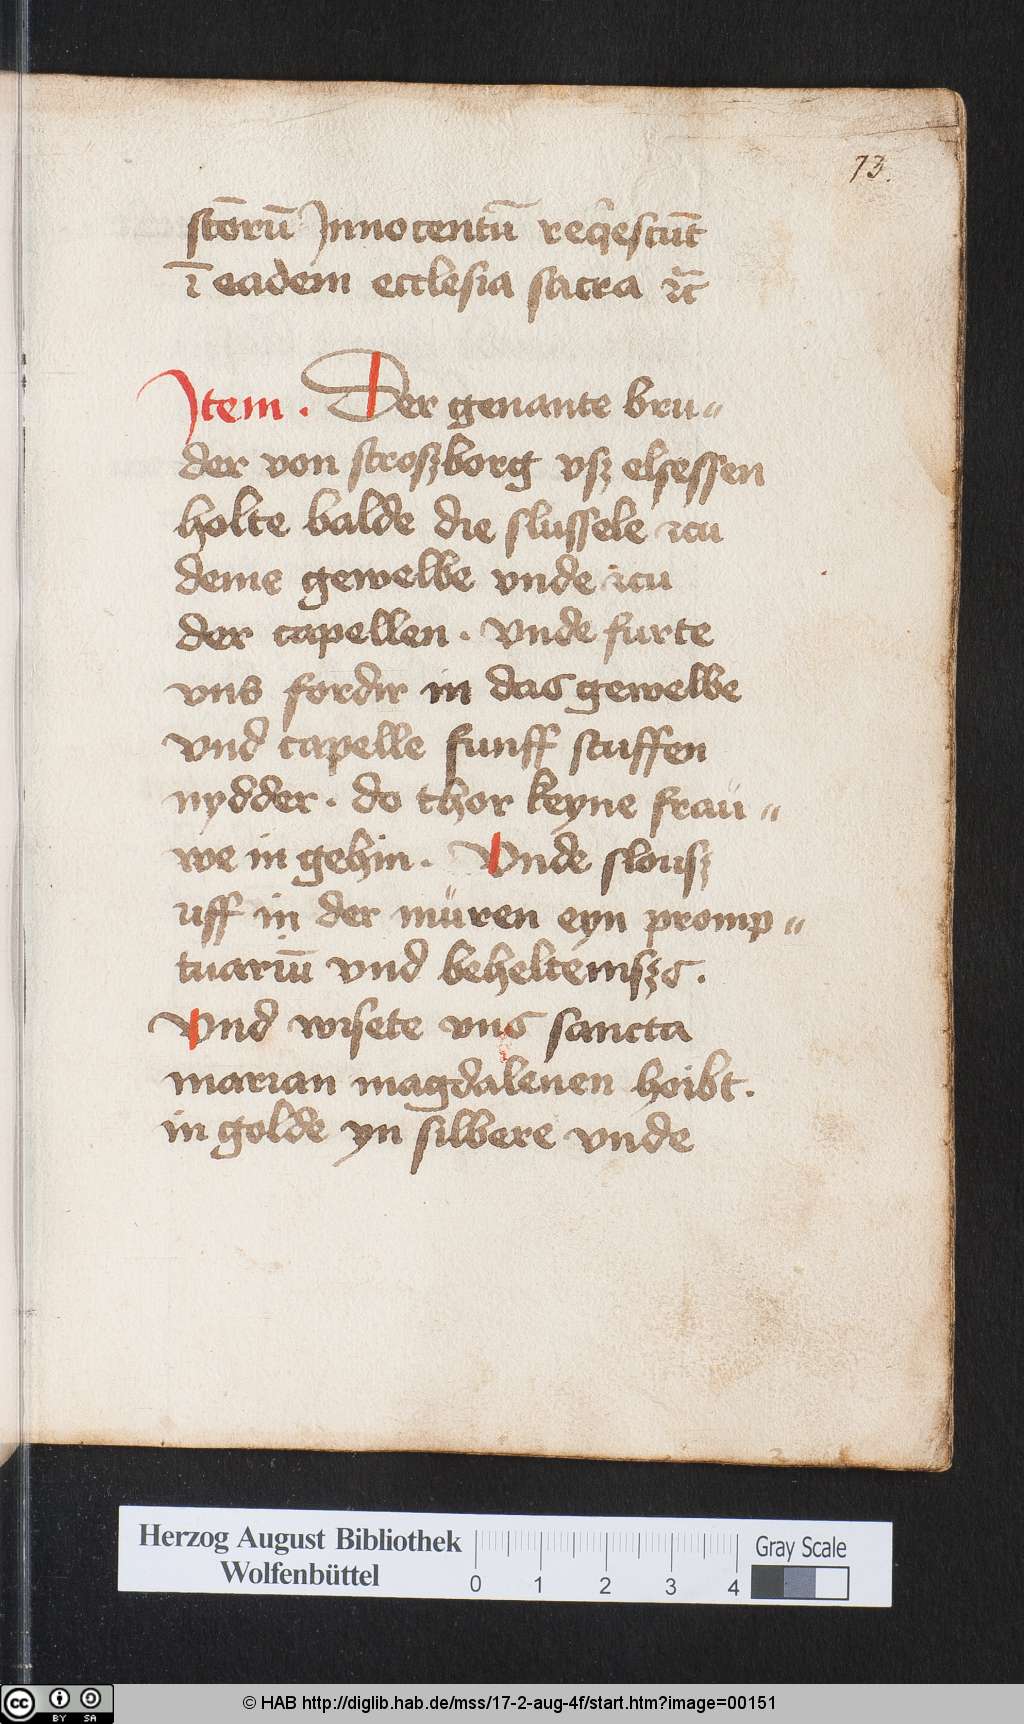 73.
sctōrū Innocentū req̂escūt
ī eadem ecclesia sacra ꝛc̄
Item . Der genante bru⸗
der von stroszborg vsz elsessen
holte balde die slussele zcu
deme gewelbe vnde zcu
der capellen . vnde furte
vns fordir in das gewelbe
vnd capelle funff stuffen
nydder . do thor keyne fraü⸗
we in gehin . Vnde slousz
uff in der müren eyn promp⸗
tuariū vnd beheltenisze .
Vnd wisete vns sancta
marian magdalenen hoibt .
in golde yn silbere vnde
Herzog August Bibliothek
Wolfenbüttel
0 1 2 3 4
Gray Scale
cc BY SA
© HAB http://diglib.hab.de/mss/17-2-aug-4f/start.htm?image=00151